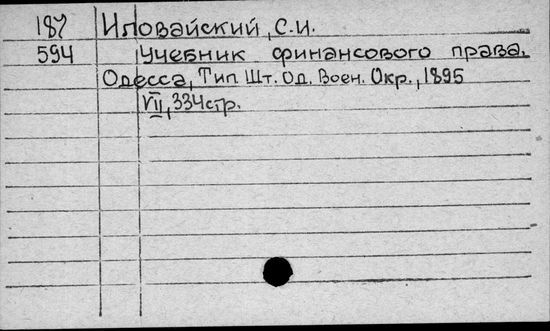 187 Иловайский, С.И.
594 Учебник финансового права.
Одесса, Тип Шт. Од. Воен. Окр., 1895
VII, 334стр.